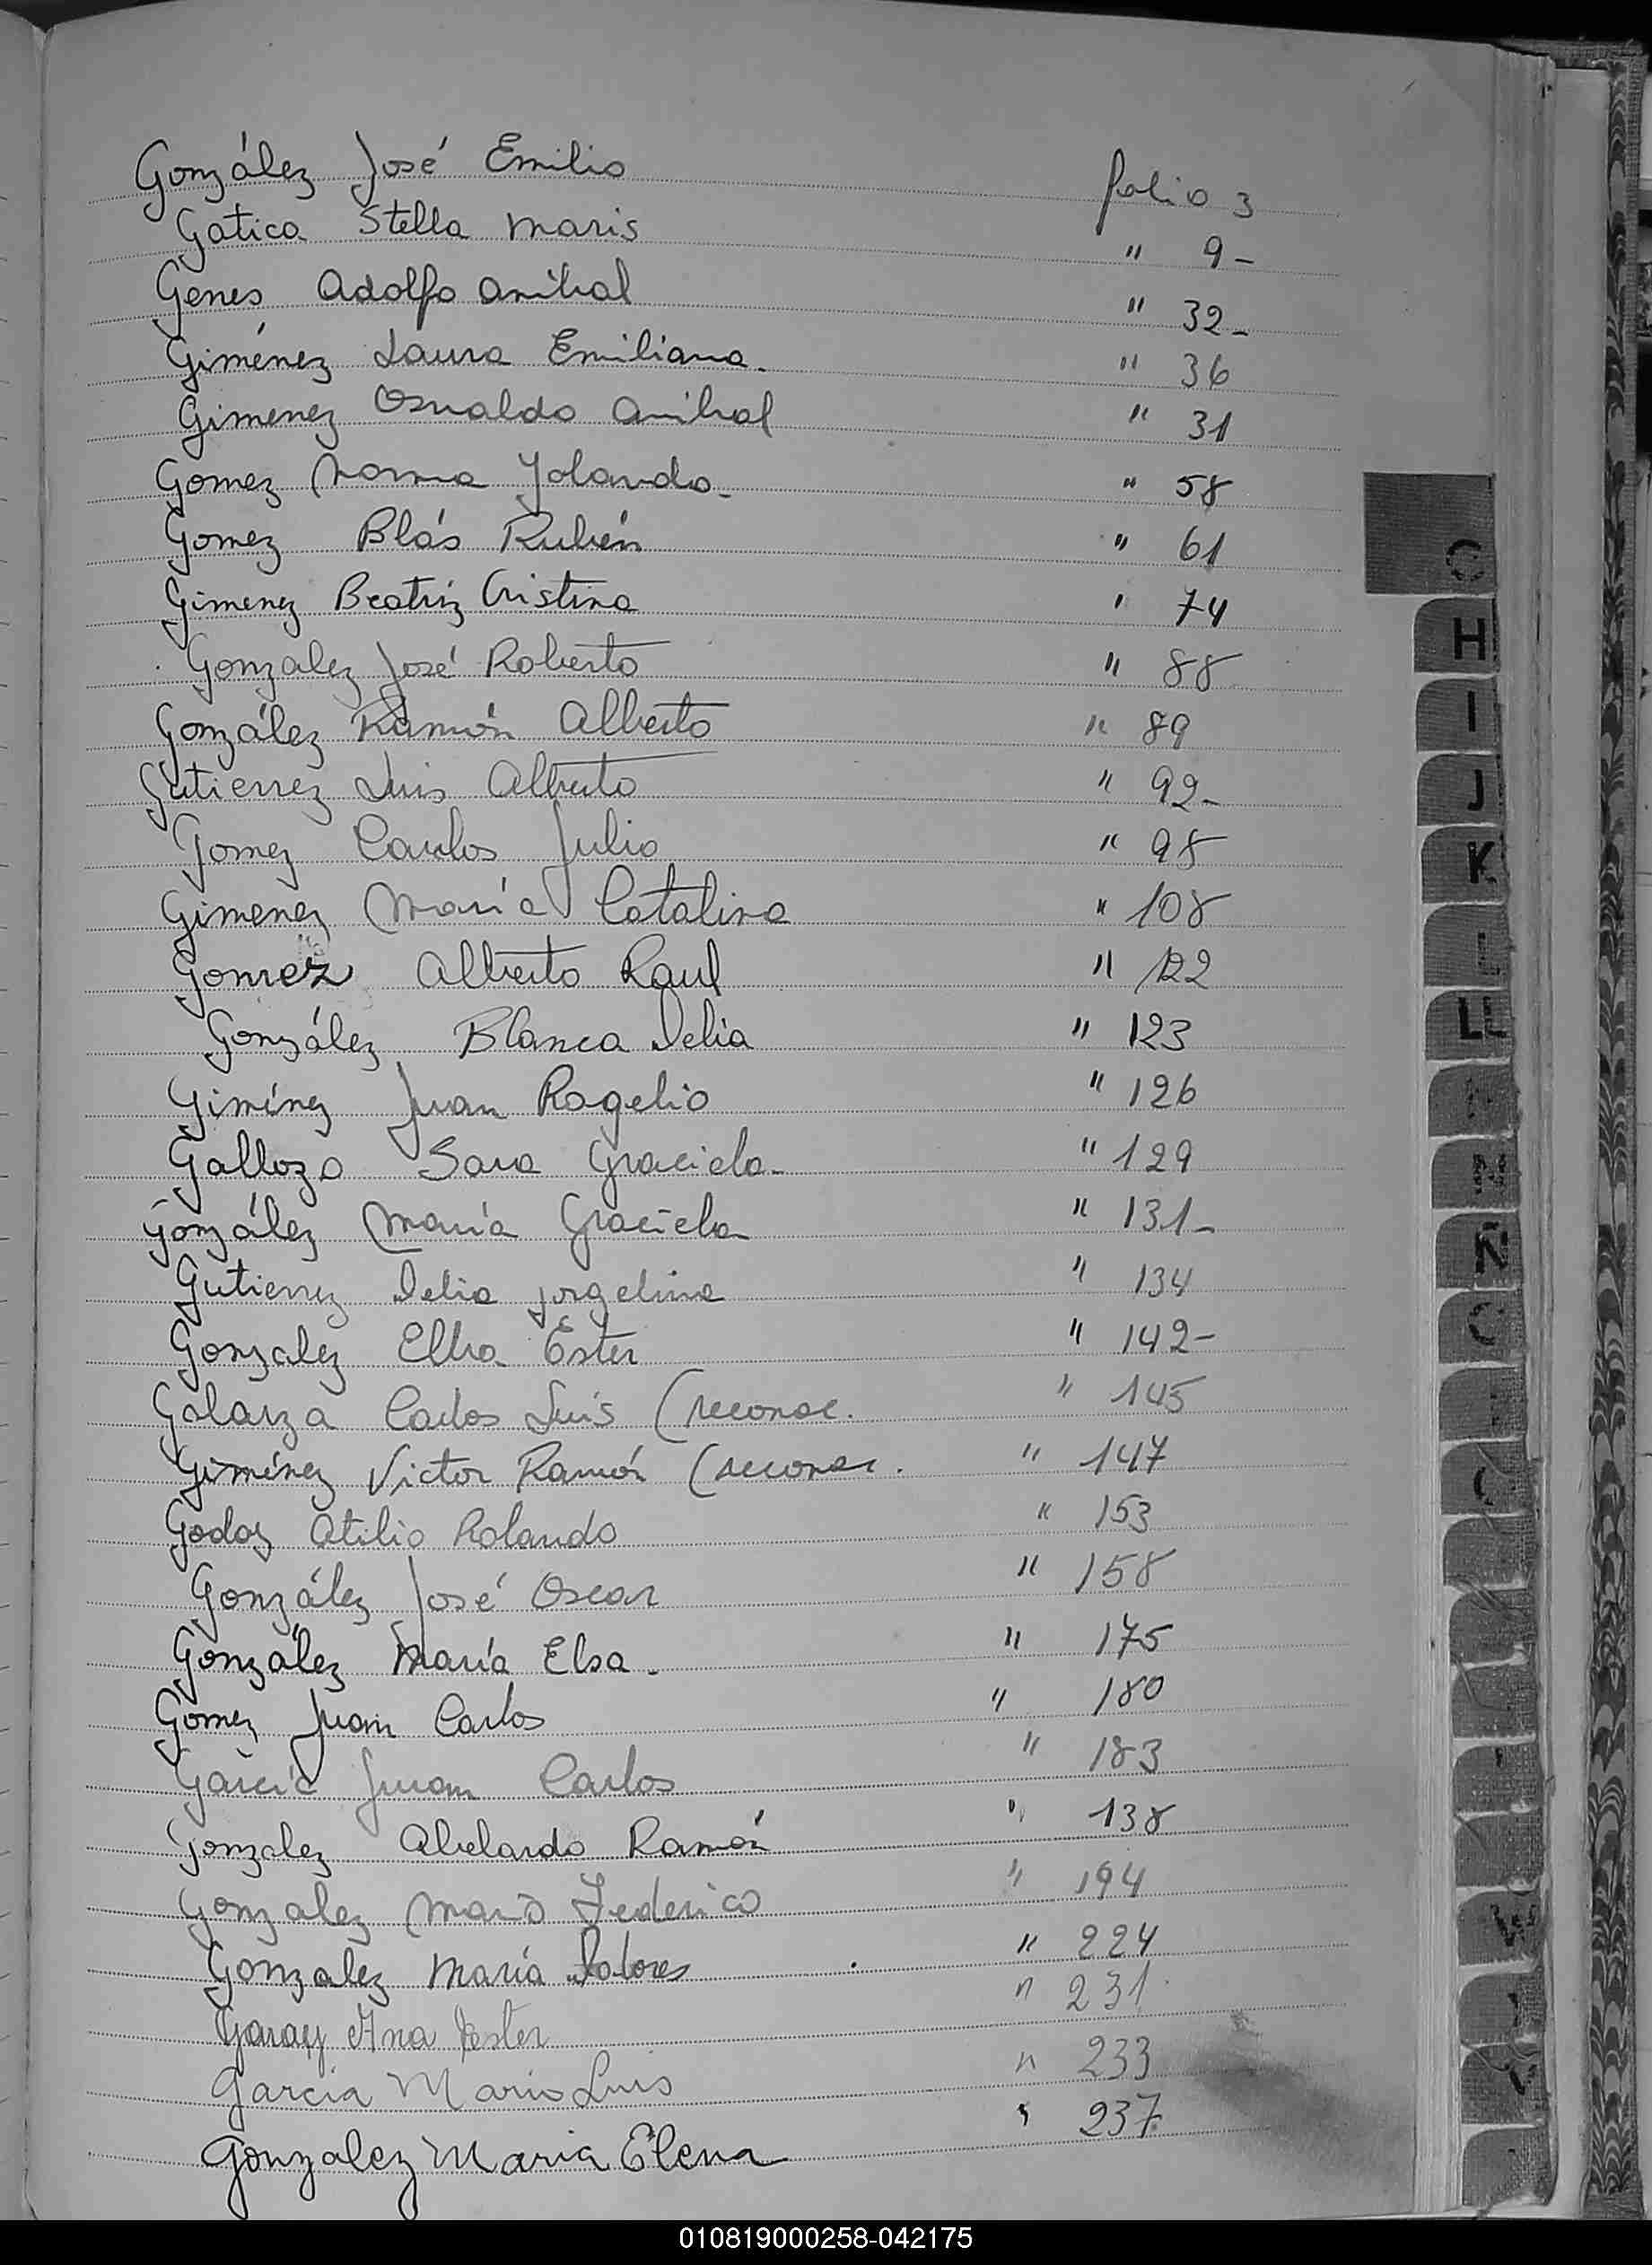 González José Emilio folio 3
Gatica Stella Maris " 9-
Genes Adolfo Anibal " 32-
Giménez Laura Emiliana. " 36
Gimenez Osvaldo Anibal " 31
Gomez Norma Yolanda- " 58
Gomez Blás Rubén " 61
Gimenez Beatriz Cristina " 74
Gonzalez José Roberto " 88
González Ramón Alberto " 89
Gutierrez Luis Alberto " 92-
Gomez Carlos Julio " 98
Gimenez María Catalina " 108
Gomez Alberto Raul " 122
González Blanca Delia " 123
Giménez Juan Rogelio " 126
Gallozo Sara Graciela- " 129
González María Graciela " 131-
Gutierrez Delia Jorgelina " 134
Gonzalez Elba Ester " 142-
Galarza Carlos Luis (reconoc. " 145
Giménez Victor Ramón (reconoc. " 147
Godoy Atilio Rolando " 153
González José Oscar " 158
González María Elsa- " 175
Gomez Juan Carlos " 180
García Juan Carlos " 183
Gonzalez Abelardo Ramón " 138
Gonzalez Mario Federico " 194
Gonzalez María Dolores " 224
Garay Ana Ester " 231
Garcia Mario Luis " 233
Gonzalez Maria Elena " 237
H
I
J
K
L
LL
Ñ
O
010819000258-042175